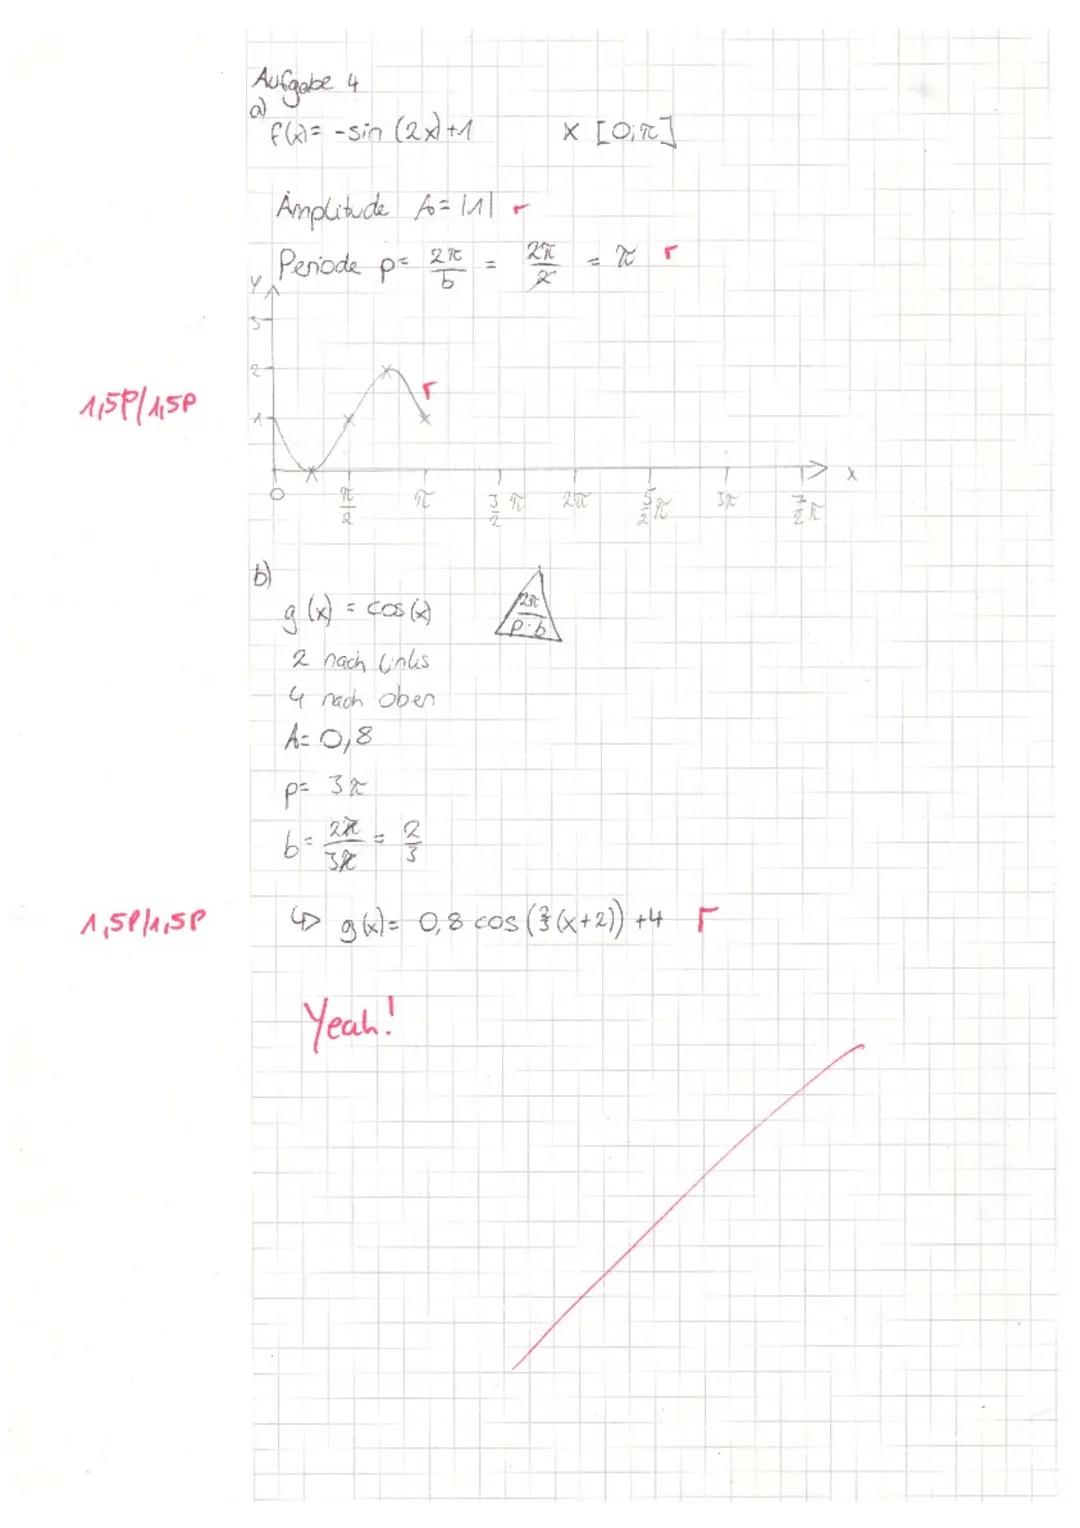 Aufgabe 4
a)
f(x)= -sin (2x)+1 x [0;π]
Amplitude A= |1| r
Periode p= 2π/b = 2π/2 = π r
y
3
2
1
r
1,5P/1,5P
x
0 π/2 π 3/2 π 2π 5/2 π 3π 7/2 π
b)
g(x) = cos(x)
2π
p·b
2 nach links
4 nach oben
A= 0,8
p= 3π
b= 2π/3π = 2/3
1,5P/1,5P
↳ g(x)= 0,8 cos (2/3(x+2)) +4 r
Yeah!